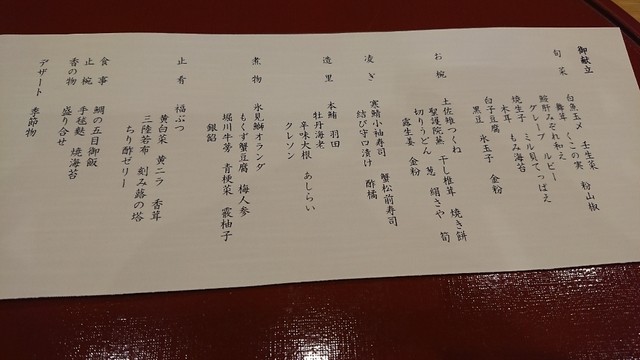 御献立
旬菜
白魚玉〆 壬生菜 粉山椒
舞茸 くこの実
鮟肝みぞれ和え
グレープ ルビー
焼生子 ミル貝てっぱえ
木耳 もみ海苔
白子豆腐
黒豆 氷玉子 金粉
お椀
土佐雅つくね 干し椎茸 焼き餅
聖護院蕪 葱 絹さや 筍
切りうどん
露生姜 金粉
凌ぎ
寒鯖小袖寿司 蟹松前寿司
結び守口漬け 酢橘
造里
本鮪 羽田
牡丹海老
辛味大根 あしらい
クレソン
煮物
氷見鰤オランダ
もくず蟹豆腐 梅人参
堀川牛蒡 青梗菜 霰柚子
銀餡
止肴
福ぶつ
黄白菜 黄ニラ 香茸
三陸若布 刻み蕗の塔
ちり酢ゼリー
食事
鯛の五目御飯
止椀
手毬麩 焼海苔
香の物
盛り合せ
デザート
季節物